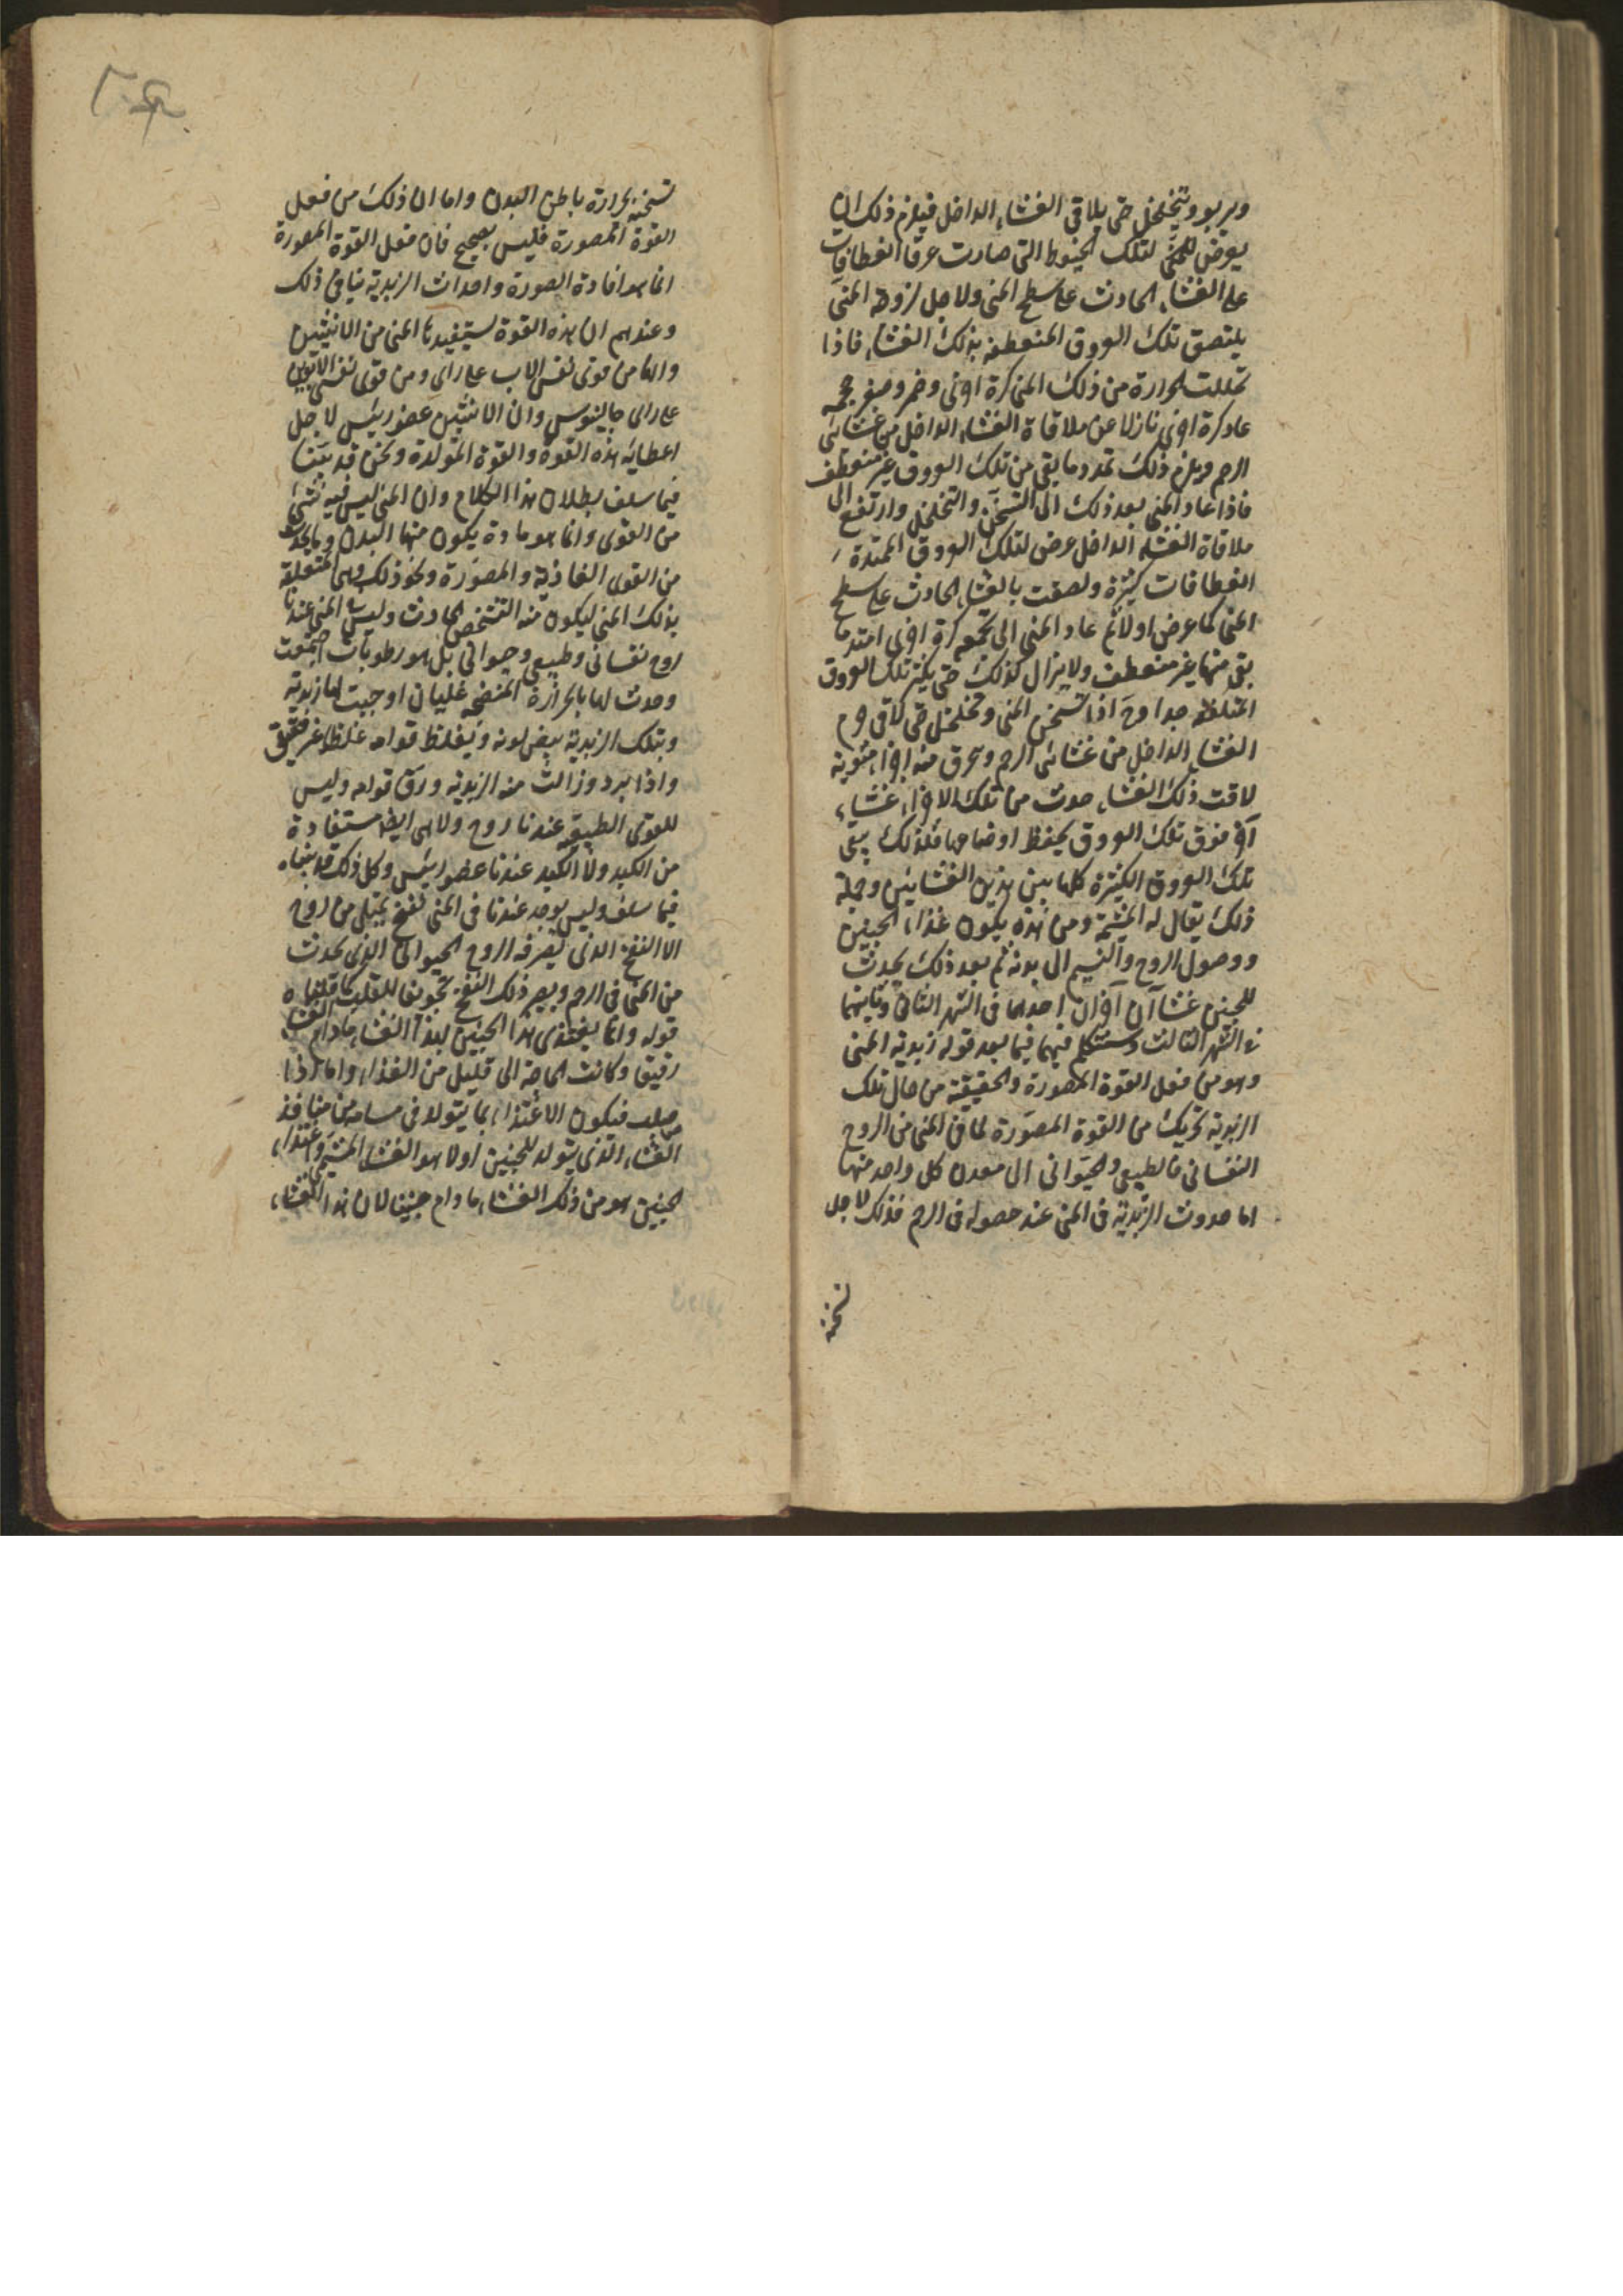 ويربو ويتخلخل حتى يلاقى الغشاء الداخل فيلزم ذلك ان
يعرض للمنى لتلك الخيوط التى صارت عرقا انعطافات
على الغشاء الحادث على سطح المنى ولاجل لزوجة المنى
يلتصق تلك العروق المنعطفة بذلك الغشاء فاذا
تحللت الحرارة من ذلك المنى كرة اخرى وضمر وصغر حجمه
عاد كرة اخرى نازلا عن ملاقاة الغشاء الداخل من غشائى
الرحم ويلزم ذلك تمدد ما بقى من تلك العروق غير منعطف
فاذا عاد المنى بعد ذلك الى التسخن والتخلخل وارتفع الى
ملاقاة الغشاء الداخل عرض لتلك العروق الممتدة
انعطافات كثيرة ولصقت بالغشاء الحادث على سطح
المنى كما عرض اولا ثم عاد المنى الى تجمعه كرة اخرى امتد ما
بقى منها غير منعطف ولا يزال كذلك حتى يكثر تلك العروق
المتلففة جدا وح اذا تسخن المنى وتخلخل حتى لاقى جرم
الغشاء الداخل من غشائى الرحم وتحرق منه اجزاء منوية
لاقت ذلك الغشاء حدث من تلك الاجزاء غشاء
آخر فوق تلك العروق يحفظ اوضاعها فلذلك يبقى
تلك العروق الكثيرة كلها بين هذين الغشائين وجملة
ذلك يقال له المشيمة ومن هذه يكون غذاء الجنين
ووصول الروح والنسيم الى بدنه ثم بعد ذلك يحدث
للجنين غشاآن آخران احدهما فى الشهر الثانى وثانيهما
فى الشهر الثالث وسنتكلم فيهما فيما بعد قوله زبدية المنى
وهو من فعل القوة المصورة والحقيقة من حال تلك
الزبدية تحريك من القوة المصورة لما فى المنى من الروح
النفسانى والطبيعى والحيوانى الى معدن كل واحد منها
اما حدوث الزبدية فى المنى عند حصوله فى الرحم فذلك لاجل
تسخنه
تسخنه بحرارة باطن البدن واما ان ذلك من فعل
القوة المصورة فليس بصحيح فان فعل القوة المصورة
انما هو افادة الصورة واحداث الزبدية ينافى ذلك
وعندهم ان هذه القوة يستفيدها المنى من الانثيين
وانها من قوى نفس الاب على راى ومن قوى نفس الابوين
على راى جالينوس وان الانثيين عضو رئيس لاجل
اعطائه هذه القوة والقوة المولدة ونحن قد بينا
فيما سلف بطلان هذا الكلام وان المنى ليس فيه شئ
من القوى وانما هو مادة يكون منها البدن وما يحدث
من القوى الغاذية والمصورة ونحو ذلك وهى المتعلقة
بذلك المنى ليكون منه الشخص الحادث وليس المنى عندنا
روح نفسانى وطبيعى وحيوانى بل هو رطوبات اجتمعت
وحدث لها بالحرارة المنضجة غليان اوجبت لها زبدية
وبتلك الزبدية يبيض لونه ويغلظ قوامه غلظا غير حقيقى
واذا برد وزالت منه الزبدية ورق قوامه وليس
للقوى الطبيعية عندنا روح ولا هى ايضا مستفادة
من الكبد ولا الكبد عندنا عضو رئيس وكل ذلك قد بيناه
فيما سلف وليس يوجد عندنا فى المنى نفخ يمتلى من روح
الا النفخ الذى يصرفه الروح الحيوانى الذى يحدث
من المنى فى الرحم ويصير ذلك النفخ تجويفا للقلب كما قلناه
قوله وانما يغتذى هذا الجنين بهذا الغشاء ما دام الغشاء
رقيقا وكانت الحاجة الى قليل من الغذاء واما اذا
صلب فيكون الاغتذاء بما يتولد فى مسامه من منافذ
الغشاء الذى يتولد للجنين اولا هو الغشاء المشيمى واغتذاء
الجنين هو من ذلك الغشاء ما دام جنينا لان هذا الغشاء